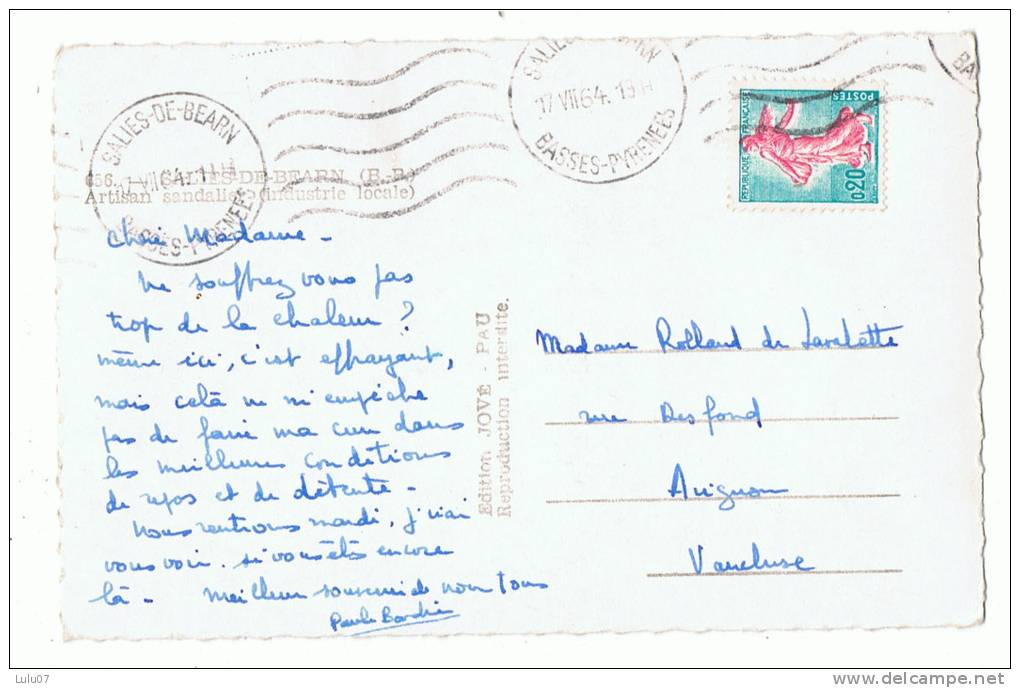 SALIES-DE-BEARN
17 VII 64. 1
BASSES-PYRENEES
17 VII 64. 19H
BASSES-PYRENEES
BA
POSTES
REPUBLIQUE FRANÇAISE
0,20
656. — SALIES-DE-BEARN (B.-P.)
Artisan sandalier (industrie locale)
Chère Madame -
Ne souffrez vous pas
trop de la chaleur ?
même ici, c'est effrayant,
mais celà ne m'empêche
pas de faire ma cure dans
les meilleures conditions
de repos et de détente -
Nous rentrons mardi, j'irai
vous voir. si vous êtes encore
là - Meilleur souvenir de nous tous
Edition JOVÉ - PAU
Reproduction interdite.
Madame Rolland de Lavalette
rue Desfond
Avignon
Vaucluse
Lulu07
delcampe.net